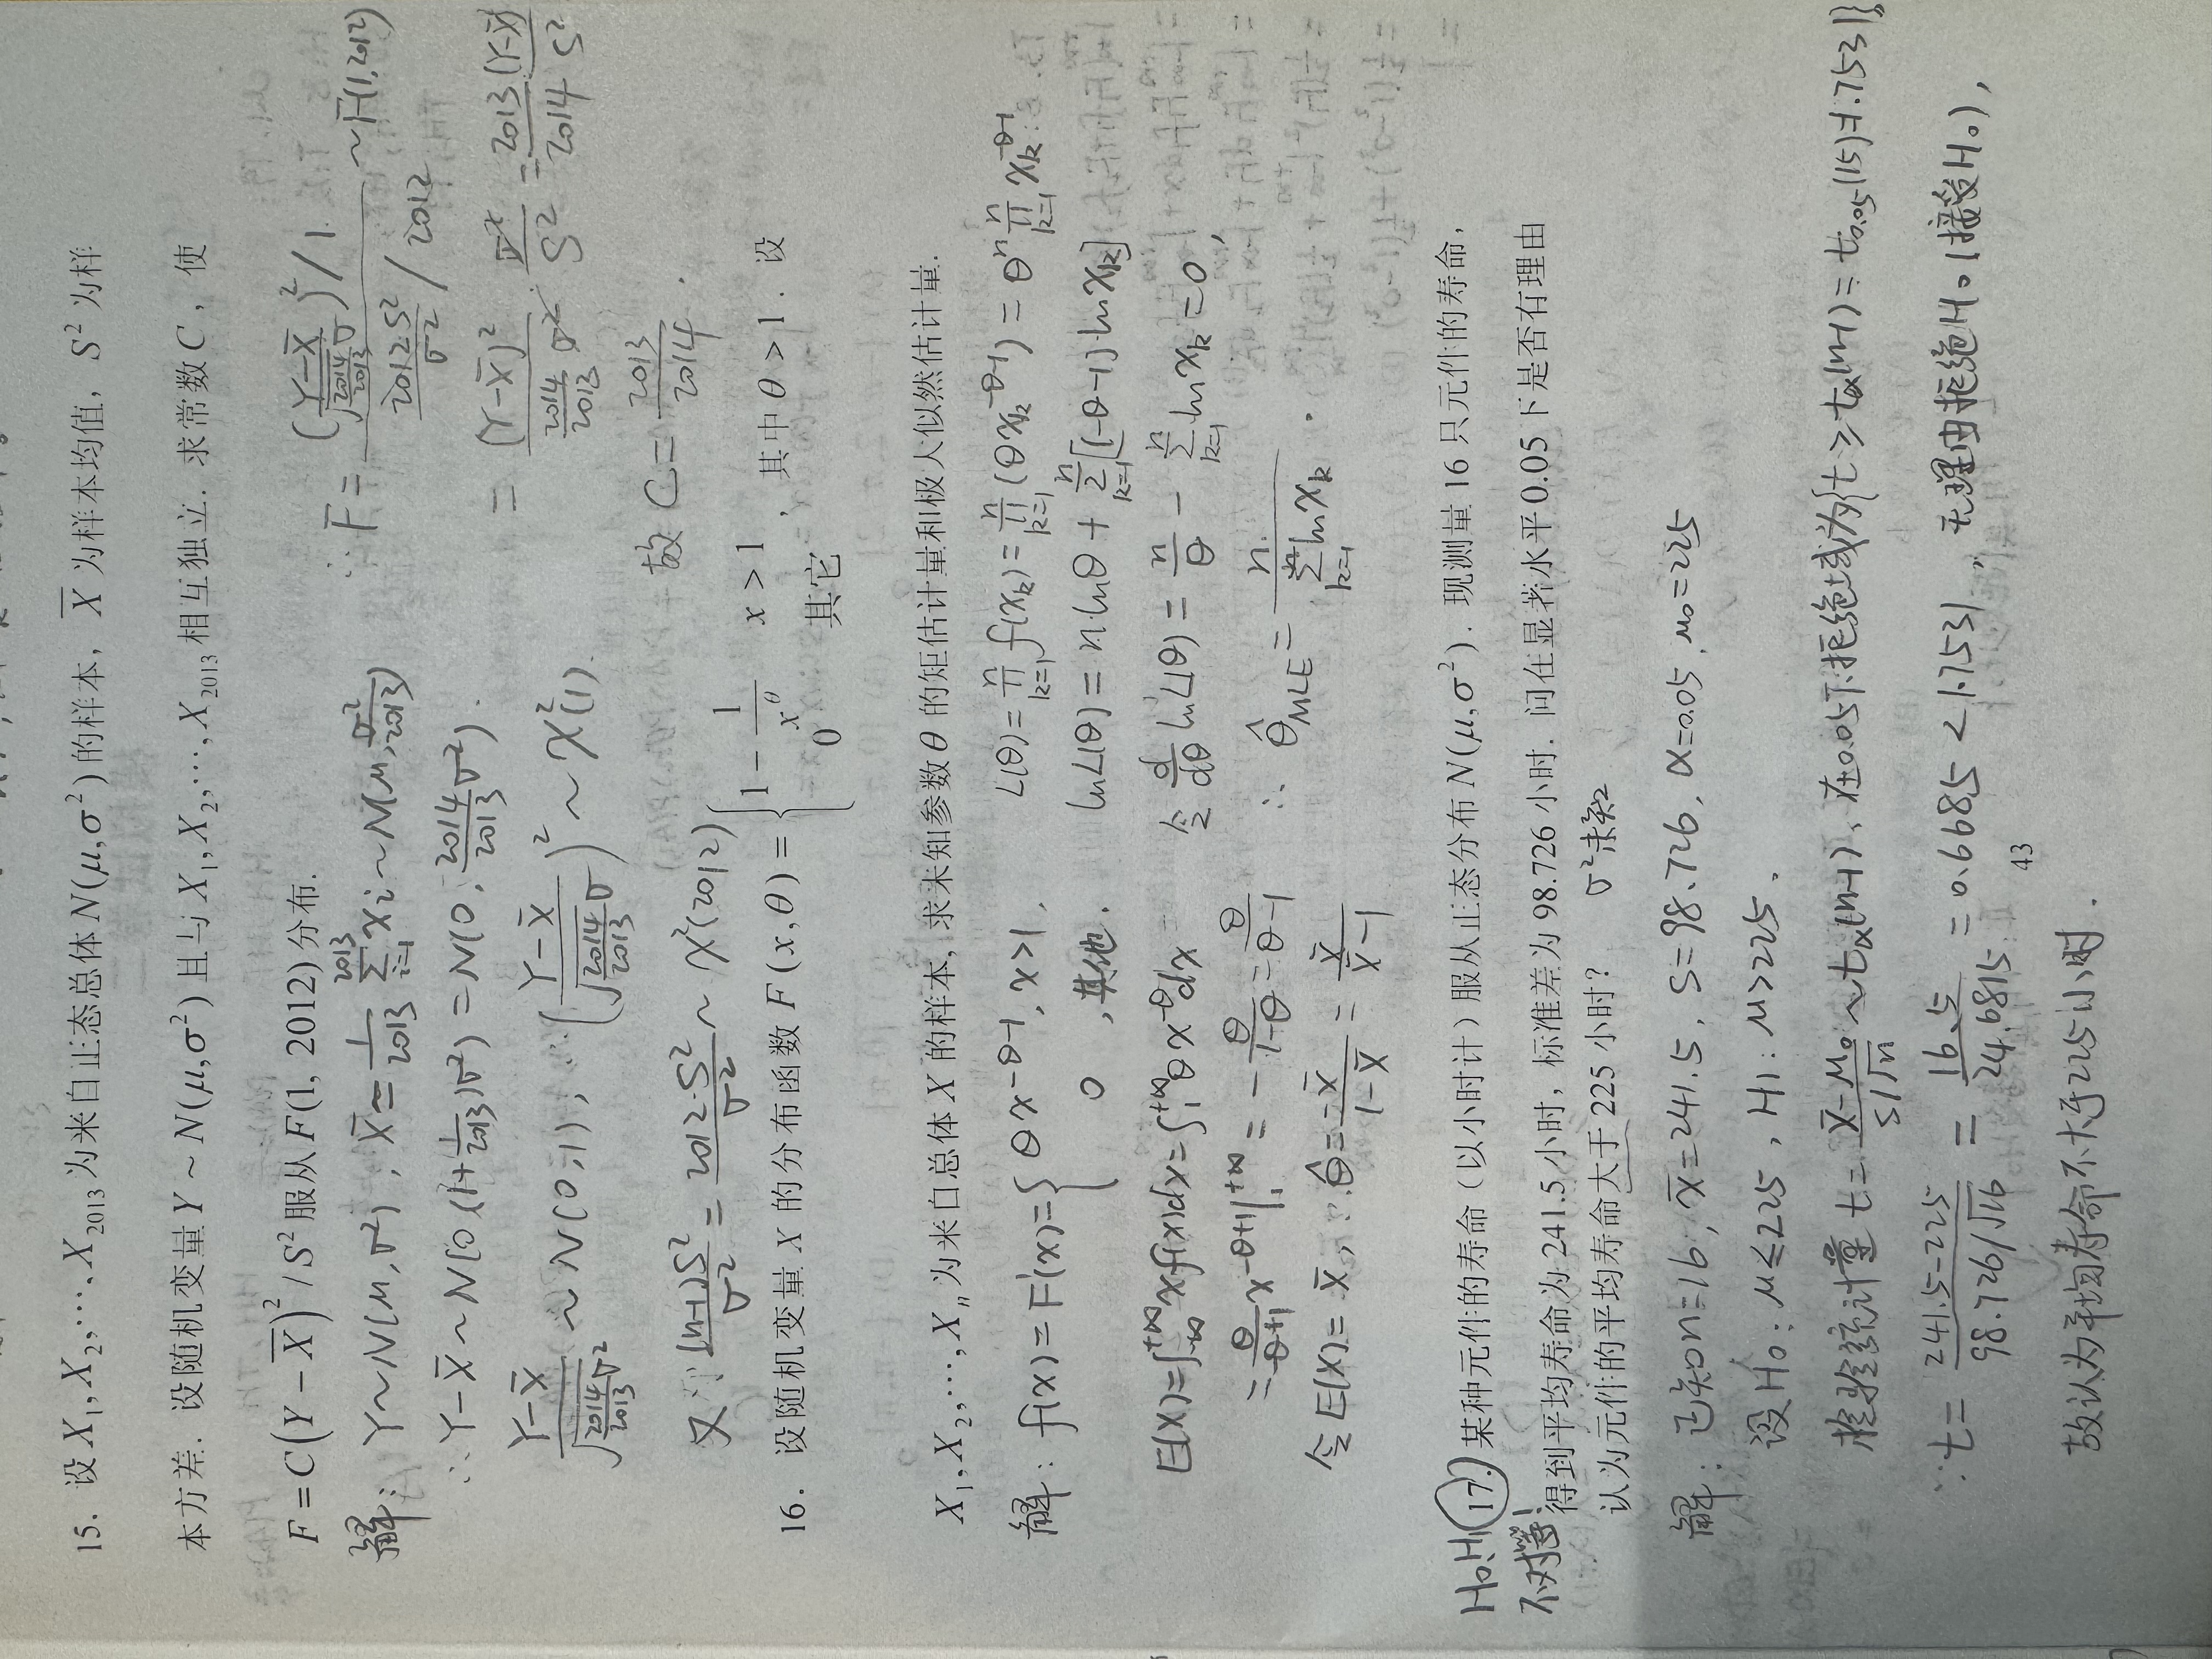 15. 设 X₁, X₂, ⋯, X₂₀₁₃ 为来自正态总体 N(μ,σ²) 的样本， X̄ 为样本均值， S² 为样
本方差. 设随机变量 Y ~ N(μ,σ²) 且与 X₁, X₂, ⋯, X₂₀₁₃ 相互独立. 求常数 C ， 使
F = C(Y − X̄)² / S² 服从 F(1, 2012) 分布.
解: Y~N(μ,σ²) , X̄ = 1/2013 ∑_{i=1}^{2013} Xi ~ N(μ, σ²/2013)
∴ Y−X̄ ~ N(0,(1+1/2013)σ²) = N(0, 2014/2013 σ²).
(Y−X̄)/√(2014/2013 σ²) ~ N(0,1), ∴ ((Y−X̄)/(√(2014/2013) σ))² ~ χ²(1).
又∵ (n-1)S²/σ² = 2012·S²/σ² ~ χ²(2012)
∴ F = ((Y−X̄)/(√(2014/2013) σ))²/1 / (2012·S²/σ² / 2012) ~ F(1,2012)
= (Y−X̄)²/(2014/2013 σ²) · σ²/S² = 2013/2014 (Y−X̄)²/S²
故 C = 2013/2014 .
16. 设随机变量 X 的分布函数 F(x,θ) = { 1 − 1/x^θ x > 1 ， 其中 θ > 1 . 设
0 其它
X₁, X₂, ⋯, Xₙ 为来自总体 X 的样本, 求未知参数 θ 的矩估计量和极大似然估计量.
解: f(x) = F'(x) = { θx^{-θ-1}, x>1,
0 , 其他.
E(X) = ∫_{-∞}^{+∞} xf(x)dx = ∫_1^{+∞} θx^{-θ}dx
= θ/(-θ+1) x^{-θ+1}|_1^{+∞} = − θ/(1-θ) = θ/(θ-1)
令 E(X) = X̄, ∴ θ̂ = −X̄/(1−X̄) = X̄/(X̄−1)
L(θ) = ∏_{k=1}^{n} f(xₖ) = ∏_{k=1}^{n} (θxₖ^{-θ-1}) = θⁿ ∏_{k=1}^{n} xₖ^{-θ-1}
lnL(θ) = n·lnθ + ∑_{k=1}^{n} [(-θ-1)·lnxₖ]
令 d/dθ lnL(θ) = n/θ − ∑_{k=1}^{n} lnxₖ = 0,
∴ θ̂_MLE = n / ∑_{k=1}^{n} lnxₖ .
H₀、H₁
不对等!
17. 某种元件的寿命（以小时计）服从正态分布 N(μ,σ²) . 现测量 16 只元件的寿命，
得到平均寿命为 241.5 小时，标准差为 98.726 小时. 问在显著水平 0.05 下是否有理由
认为元件的平均寿命大于 225 小时? σ²未知
解: 已知n=16, x̄=241.5, S=98.726, α=0.05, μ₀=225
设H₀: μ≤225 , H₁: μ>225 .
检验统计量 t = (x̄−μ₀)/(s/√n) ~ tα(n-1), 在0.05下拒绝域为{t ≥ tα(n-1) = t₀.₀₅(15)=1.7531}
∵ t = (241.5−225)/(98.726/√16) = 16.5/24.6815 = 0.6685 < 1.7531 , 无理由拒绝H₀(接受H₀),
43
故认为平均寿命不大于225小时.